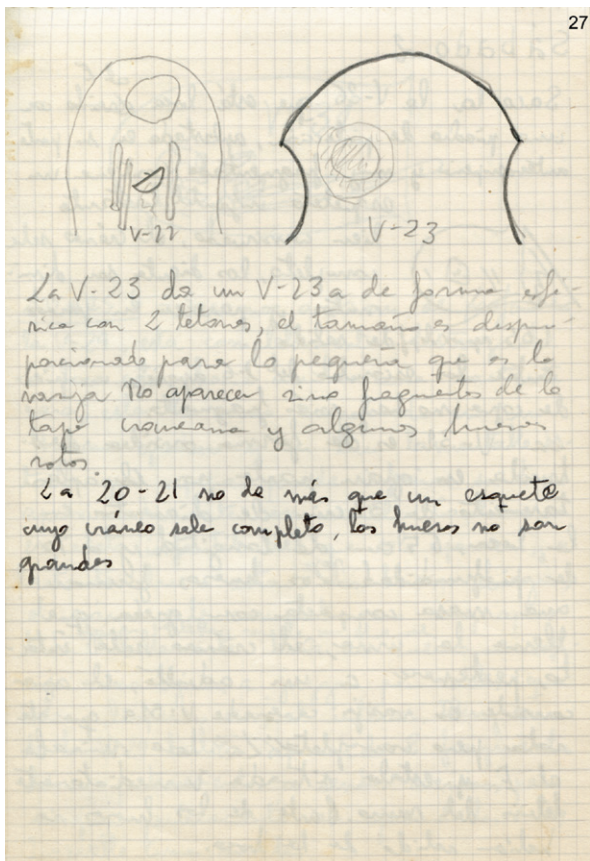 27
V-22
V-23
La V-23 da un V-23 a de forma esfé-
rica con 2 tetones, el tamaño es despro-
porcionado para lo pequeña que es la
vasija. No aparecen sino fragmentos de la
tapa craneana y algunos huesos
rotos.
La 20-21 no da más que un esquete
cuyo cráneo sale completo, los huesos no son
grandes